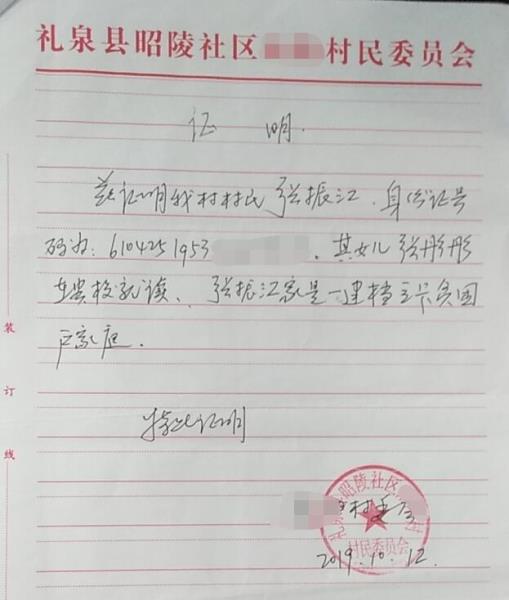 礼泉县昭陵社区 村民委员会
证 明.
兹证明我村村民张振江.身份证号
码为:6104251953 .其女儿张彤彤
在贵校就读、张振江家是一建档立卡贫困
户家庭.
特此证明
装
订
线
昭陵社区
村委会
村民委员会
2019.10.12.